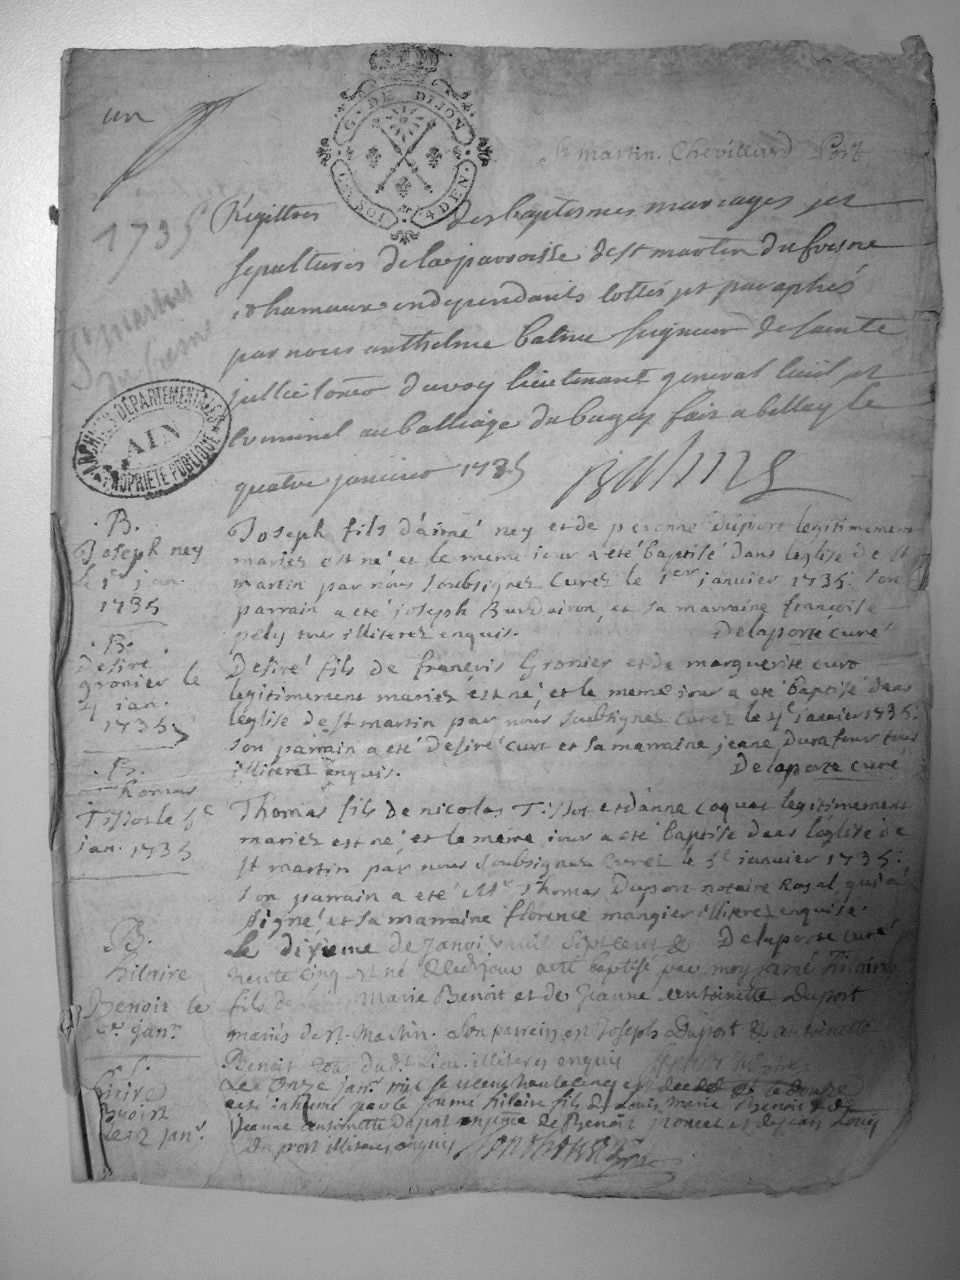 un
G. DE DIJON
DEUX SOLS 4 DEN.
St martin. Chevillard Port
1735
Régistres des baptesmes mariages et
St martin
du fresne
sepultures de la parroisse de st martin du fresne
& hameaux independants cottés et paraphés
par nous anthelme balme seigneur de sainte
jullie du roy lieutenant general civil et
criminel au balliage du bugey fait a belley le
quatre janvier 1735 Balme
ARCHIVES DÉPARTEMENTALES
AIN
PROPRIÉTÉ PUBLIQUE
B.
Joseph ney
le 1er jan.
1735
Joseph fils d'aimé ney et de peronne duport legitimement
mariez est né et le meme iour a eté baptisé dans l'eglise de st
martin par nous soubsignez curez le 1er janvier 1735. son
parrain a eté joseph et sa marraine françoise
pely tous illiterez enquis. Delaporte curé
B.
Desiré
gronier le
4 jan.
1735
Desiré fils de françois Gronier et de marguerite curt
legitimement mariez est né, et le meme iour a eté baptisé dans
l'eglise de st martin par nous soubsignez curez le 4e janvier 1735.
son parrain a eté desiré curt et sa marraine jeane tous
illiterez enquis. Delaporte curé
B.
Thomas
Tissot le 5e
jan. 1735
Thomas fils de nicolas Tissot et d'anne coquet legitimement
mariez est né, et le meme iour a eté baptisé dans l'eglise de
st martin par nous soubsignez curez le 5e janvier 1735.
son parrain a eté Mr Thomas Duport notaire Royal qui a
signé et sa marraine florence mangier illiterez enquise.
Delaporte curé
B.
hilaire
Benoit le
janr
Le dixieme de Janvier mil sept cent
trente cinq est né et led jour a eté baptisé par moy hilaire
fils de Marie Benoit et de Jeanne antoinette Duport
mariés de st Martin. Son parrein est Joseph Duport & antoinette
Benoit tous dud. lieu illiteres enquis
S.
hilaire
Benoit
le 12 janr
Le Onze janr mil sept cens trente cinq est decedé et le douze
a eté inhumé hilaire fils de Louis Marie Benoit & de
Jeanne antoinette Duport de Benoit et de jean Louis
Duport illiteres enquis